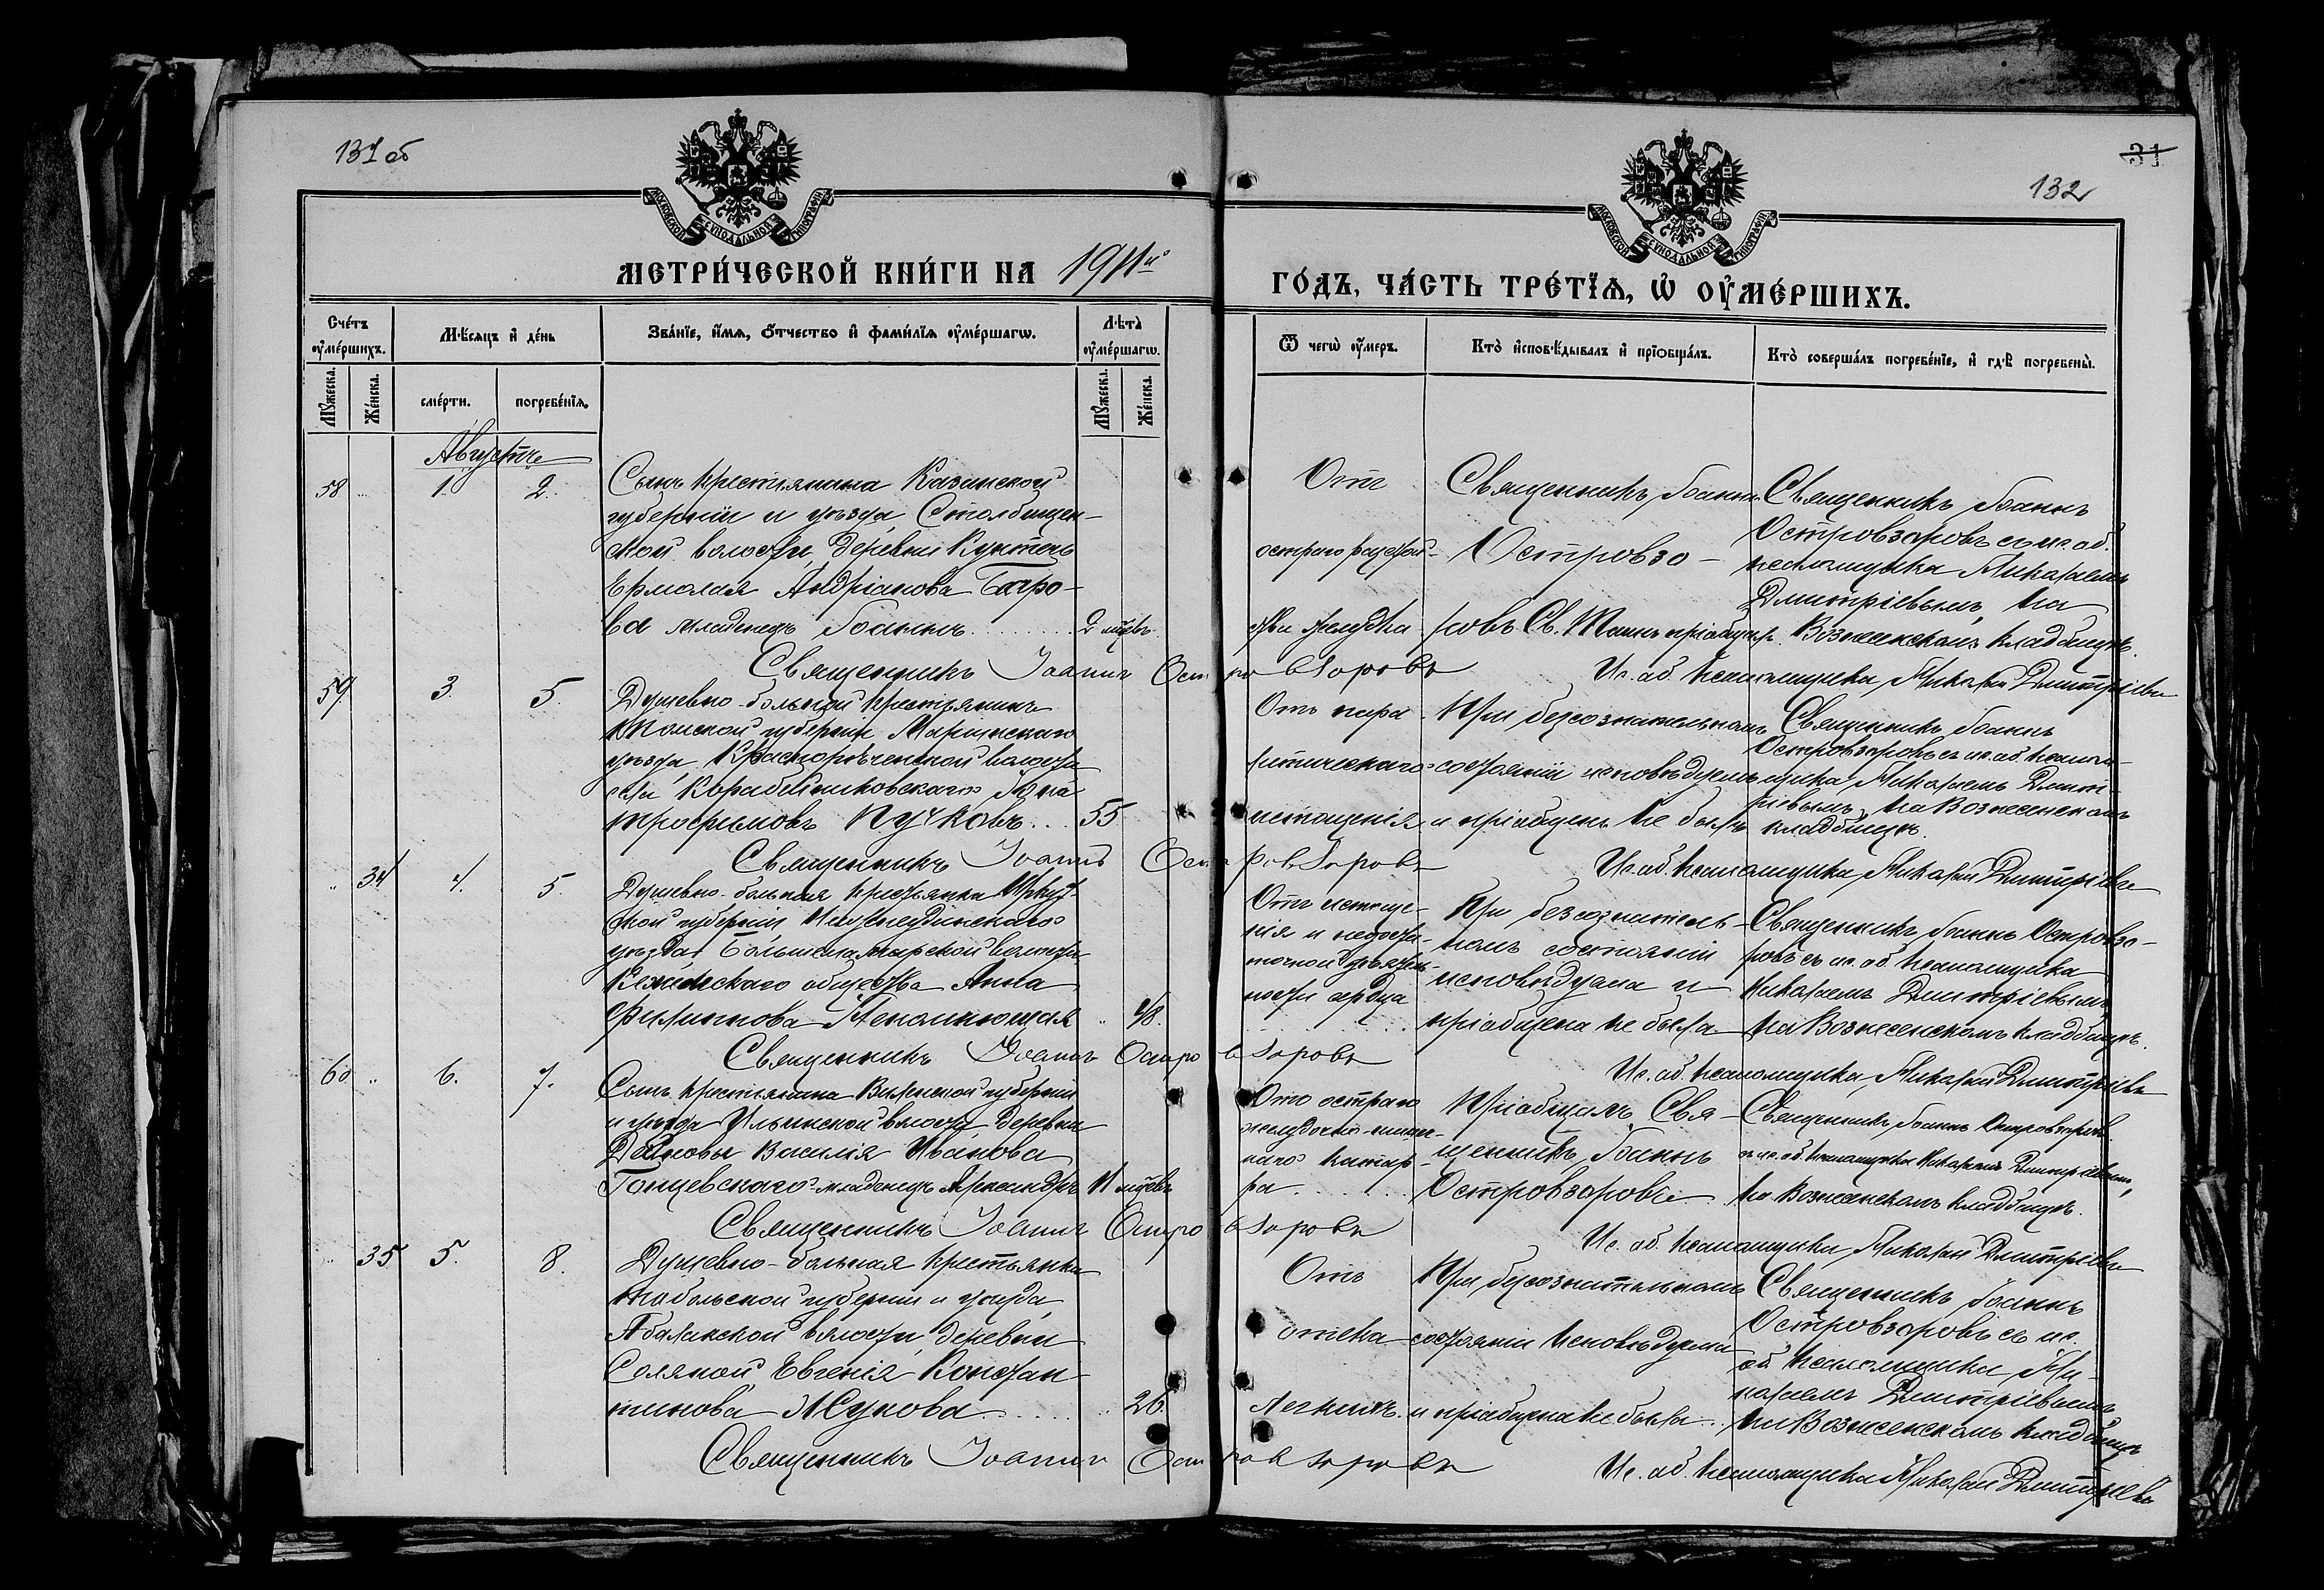 131 об
31
132
МОСКОВСКОЙ СѴНОДАЛЬНОЙ ТИПОГРАФІИ
МОСКОВСКОЙ СѴНОДАЛЬНОЙ ТИПОГРАФІИ
МЕТРИ́ЧЕСКОЙ КНИ́ГИ НА 1911й
ГО́ДЪ, ЧА́СТЬ ТРЕ́ТЇѦ, Ѡ҆ ОУ҆МЕ́РШИХЪ.
Сче́тъ оу҆ме́ршихъ.
Мѣ́сяцъ и҆ де́нь
Зва́нїе, и҆́мѧ, ѻ҆́тчество и҆ фами́лїѧ оу҆ме́ршагѡ.
Лѣ́та̀ оу҆ме́ршагѡ.
Ѿ чегѡ̀ оу҆́меръ.
Кто̀ и҆сповѣ́дывалъ и҆ прїѡбща́лъ.
Кто̀ соверша́лъ погребе́нїе, и҆ гдѣ̀ погребены̀.
Мꙋ́жеска.
Же́нска.
сме́рти.
погребе́нїѧ.
Мꙋ́жеска.
Же́нска.
Августъ
58 .. 1. 2.
Сынъ крестьянина Казанской
губерніи и уѣзда, Столбищен-
ской волости, деревни
Ермолая Андріанова
младенецъ Іоаннъ ........ 2 мѣсц.
Отъ
острого
желудка
Священникъ Іоаннъ
Островзо-
ровъ Св. Таинъ пріобщ.
Священникъ Іоаннъ
Островзоровъ съ ис. об.
псаломщика Николаемъ
Дмитріевымъ, на
Вознесенскомъ кладбищѣ.
Священникъ Іоаннъ Островзоровъ
Ис. об. псаломщика Николай Дмитріевъ
59 3. 5.
Душевно-больной крестьянинъ
Томской губерніи Маріинскаго
уѣзда, Краснорѣченской волости
села
Трофимовъ Пучковъ... 55
Отъ пара-
литическаго
истощенія
При безсознательномъ
состояніи исповѣдуемъ
и пріобщенъ не былъ
Священникъ Іоаннъ
Островзоровъ съ ис. об. псалом-
щика Николаемъ Дмит-
ріевымъ, на Вознесенскомъ
кладбищѣ.
Священникъ Іоаннъ Островзоровъ
Ис. об. псаломщика Николай Дмитріевъ
.. 34 4. 5.
Душевно-больная крестьянка Иркут-
ской губерніи Нижнеудинскаго
уѣзда, волости
общества Анна
Филиппова .. 48.
Отъ истоще-
нія и недоста-
точной дѣятель-
ности сердца
При безсознатель-
номъ состояніи
исповѣдуема и
пріобщена не была
Священникъ Іоаннъ Островзо-
ровъ съ ис. об. псаломщика
Николаемъ Дмитріевымъ
на Вознесенскомъ кладбищѣ.
Священникъ Іоаннъ Островзоровъ
Ис. об. псаломщика Николай Дмитріевъ
60 .. 6. 7.
Сынъ крестьянина Виленской губерніи
и уѣзда Ильинской волости, деревни
Василія Иванова
младенецъ Александръ 11 мѣсц.
Отъ острого
желудочно-кишеч-
наго катар-
ра.......
Пріобщалъ Свя-
щенникъ Іоаннъ
Островзоровъ
Священникъ Іоаннъ Островзоровъ
съ ис. об. псаломщика Николаемъ Дмитріевымъ,
на Вознесенскомъ кладбищѣ.
Священникъ Іоаннъ Островзоровъ
Ис. об. псаломщика Николай Дмитріевъ
.. 35 5. 8.
Душевно-больная крестьянка
Тобольской губерніи и уѣзда,
Абалакской волости, деревни
Соляной Евгенія Констан-
тинова Жукова ...... 26.
Отъ
отека
легкихъ.
При безсознательномъ
состояніи исповѣдуема
и пріобщена не была...
Священникъ Іоаннъ
Островзоровъ съ ис.
об. псаломщика Ни-
колаемъ Дмитріевымъ
на Вознесенскомъ кладбищѣ
Священникъ Іоаннъ Островзоровъ
Ис. об. псаломщика Николай Дмитріевъ